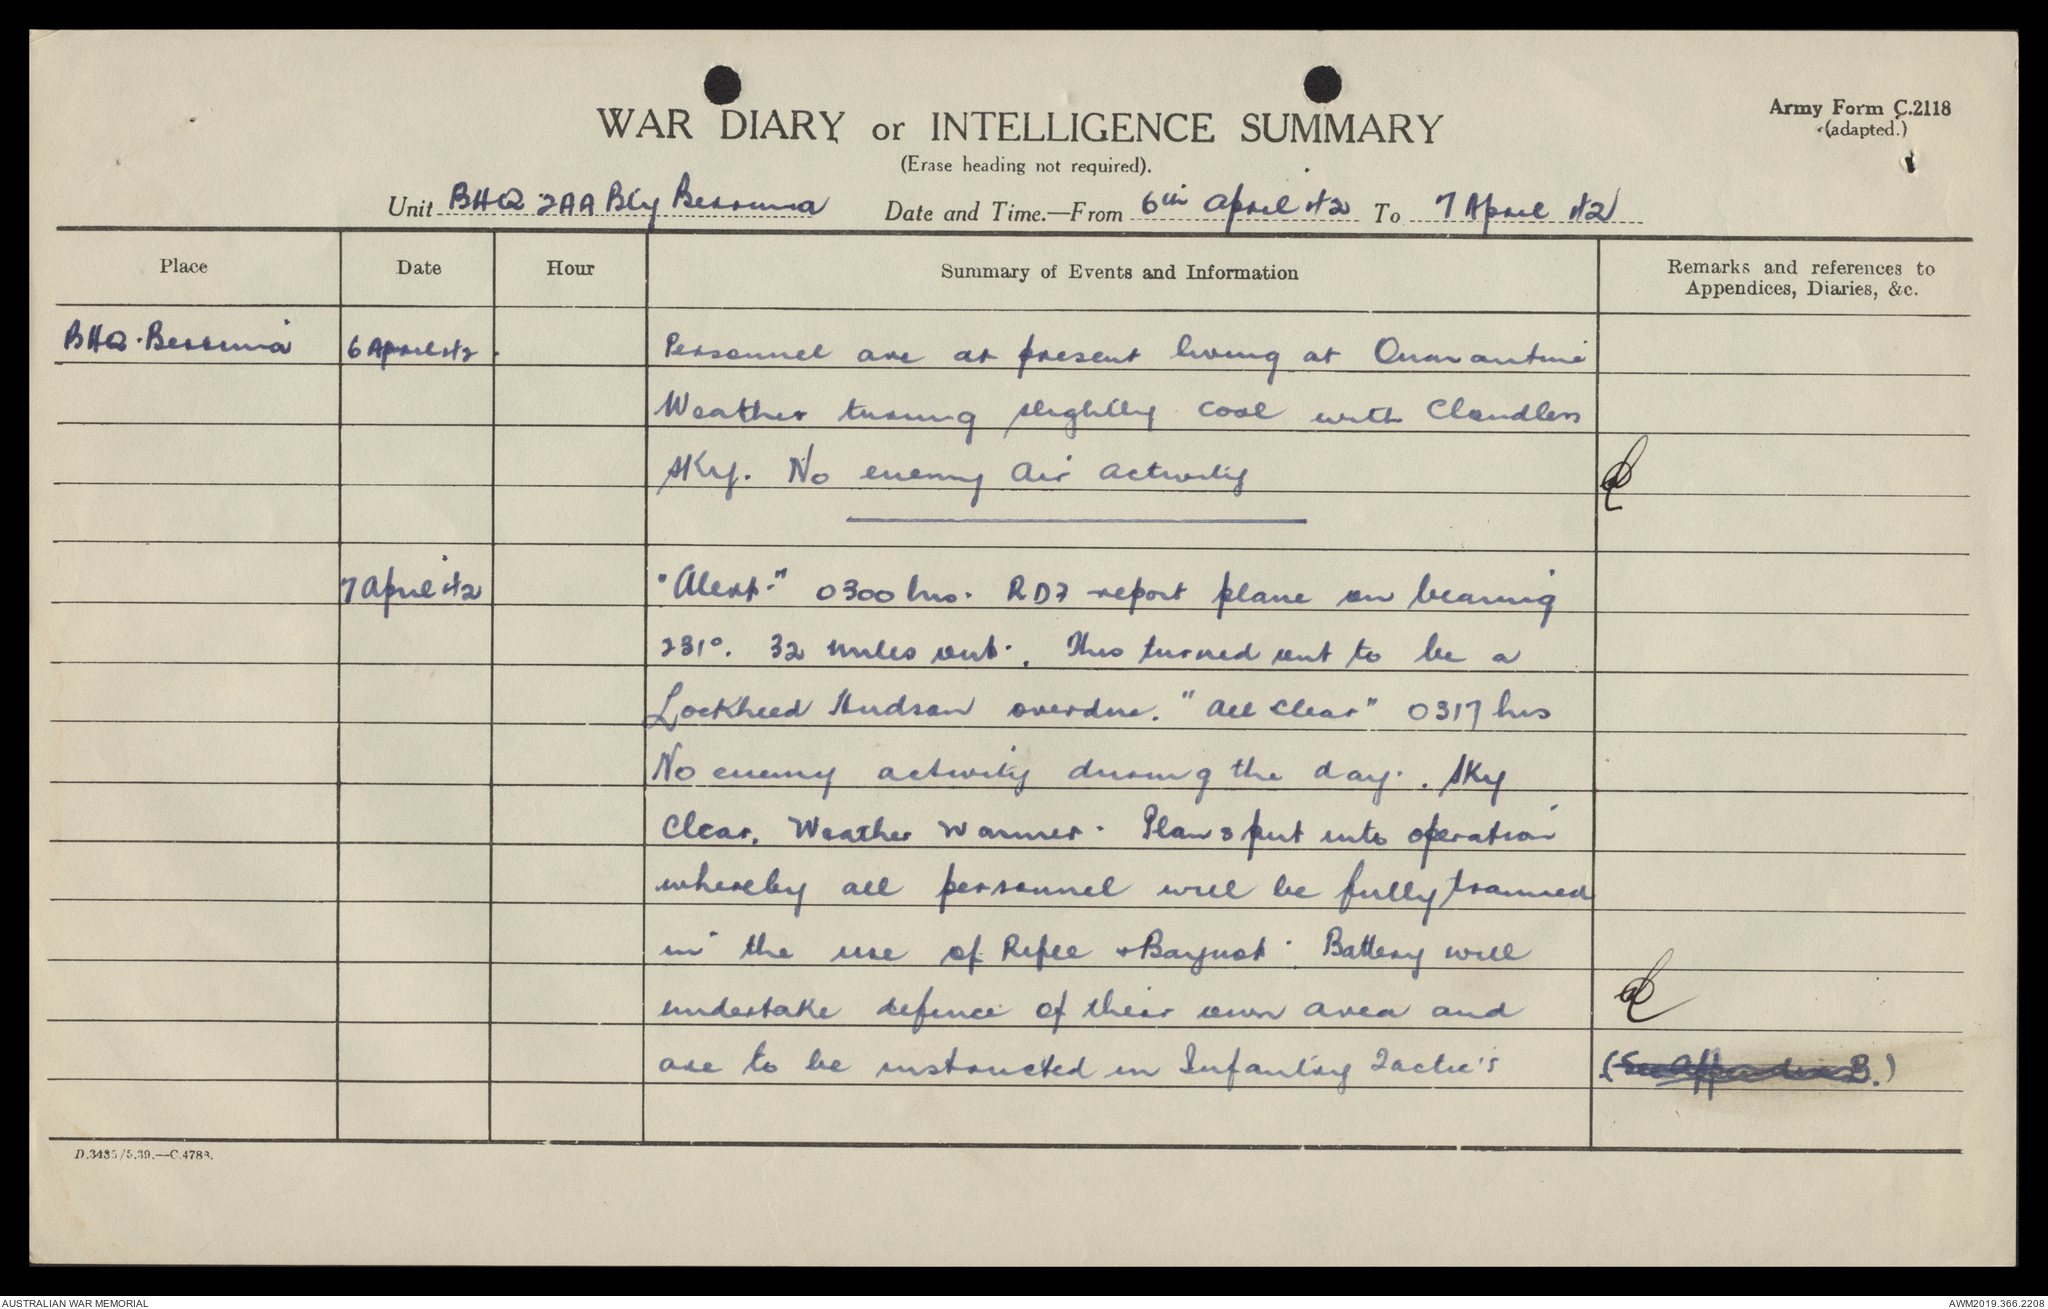 Army Form C.2118
(adapted.)
WAR DIARY or INTELLIGENCE SUMMARY
(Erase heading not required).
Unit BHQ 2AA Bty Berrima Date and Time.—From 6th April 42 To 7 April 42
Place Date Hour Summary of Events and Information Remarks and references to
Appendices, Diaries, &c.
BHQ. Berrima 6 April 42. Personnel are at present living at Quarantine
Weather turning slightly cool with Cloudless
sky. No enemy air activity
7 April 42 "Alert." 0300 hrs. RDF report plane on bearing
231°. 32 miles out. This turned out to be a
Lockheed Hudson overdue. "All Clear" 0317 hrs
No enemy activity during the day. Sky
Clear. Weather Warmer. Plans put into operation
whereby all personnel will be fully trained
in the use of Rifle & Baynot. Battery will
undertake defence of their own area and
are to be instructed in Infantry Tactic's (See Appendix B.)
D.3435/5.39.—C.4783.
AUSTRALIAN WAR MEMORIAL AWM2019.366.2208